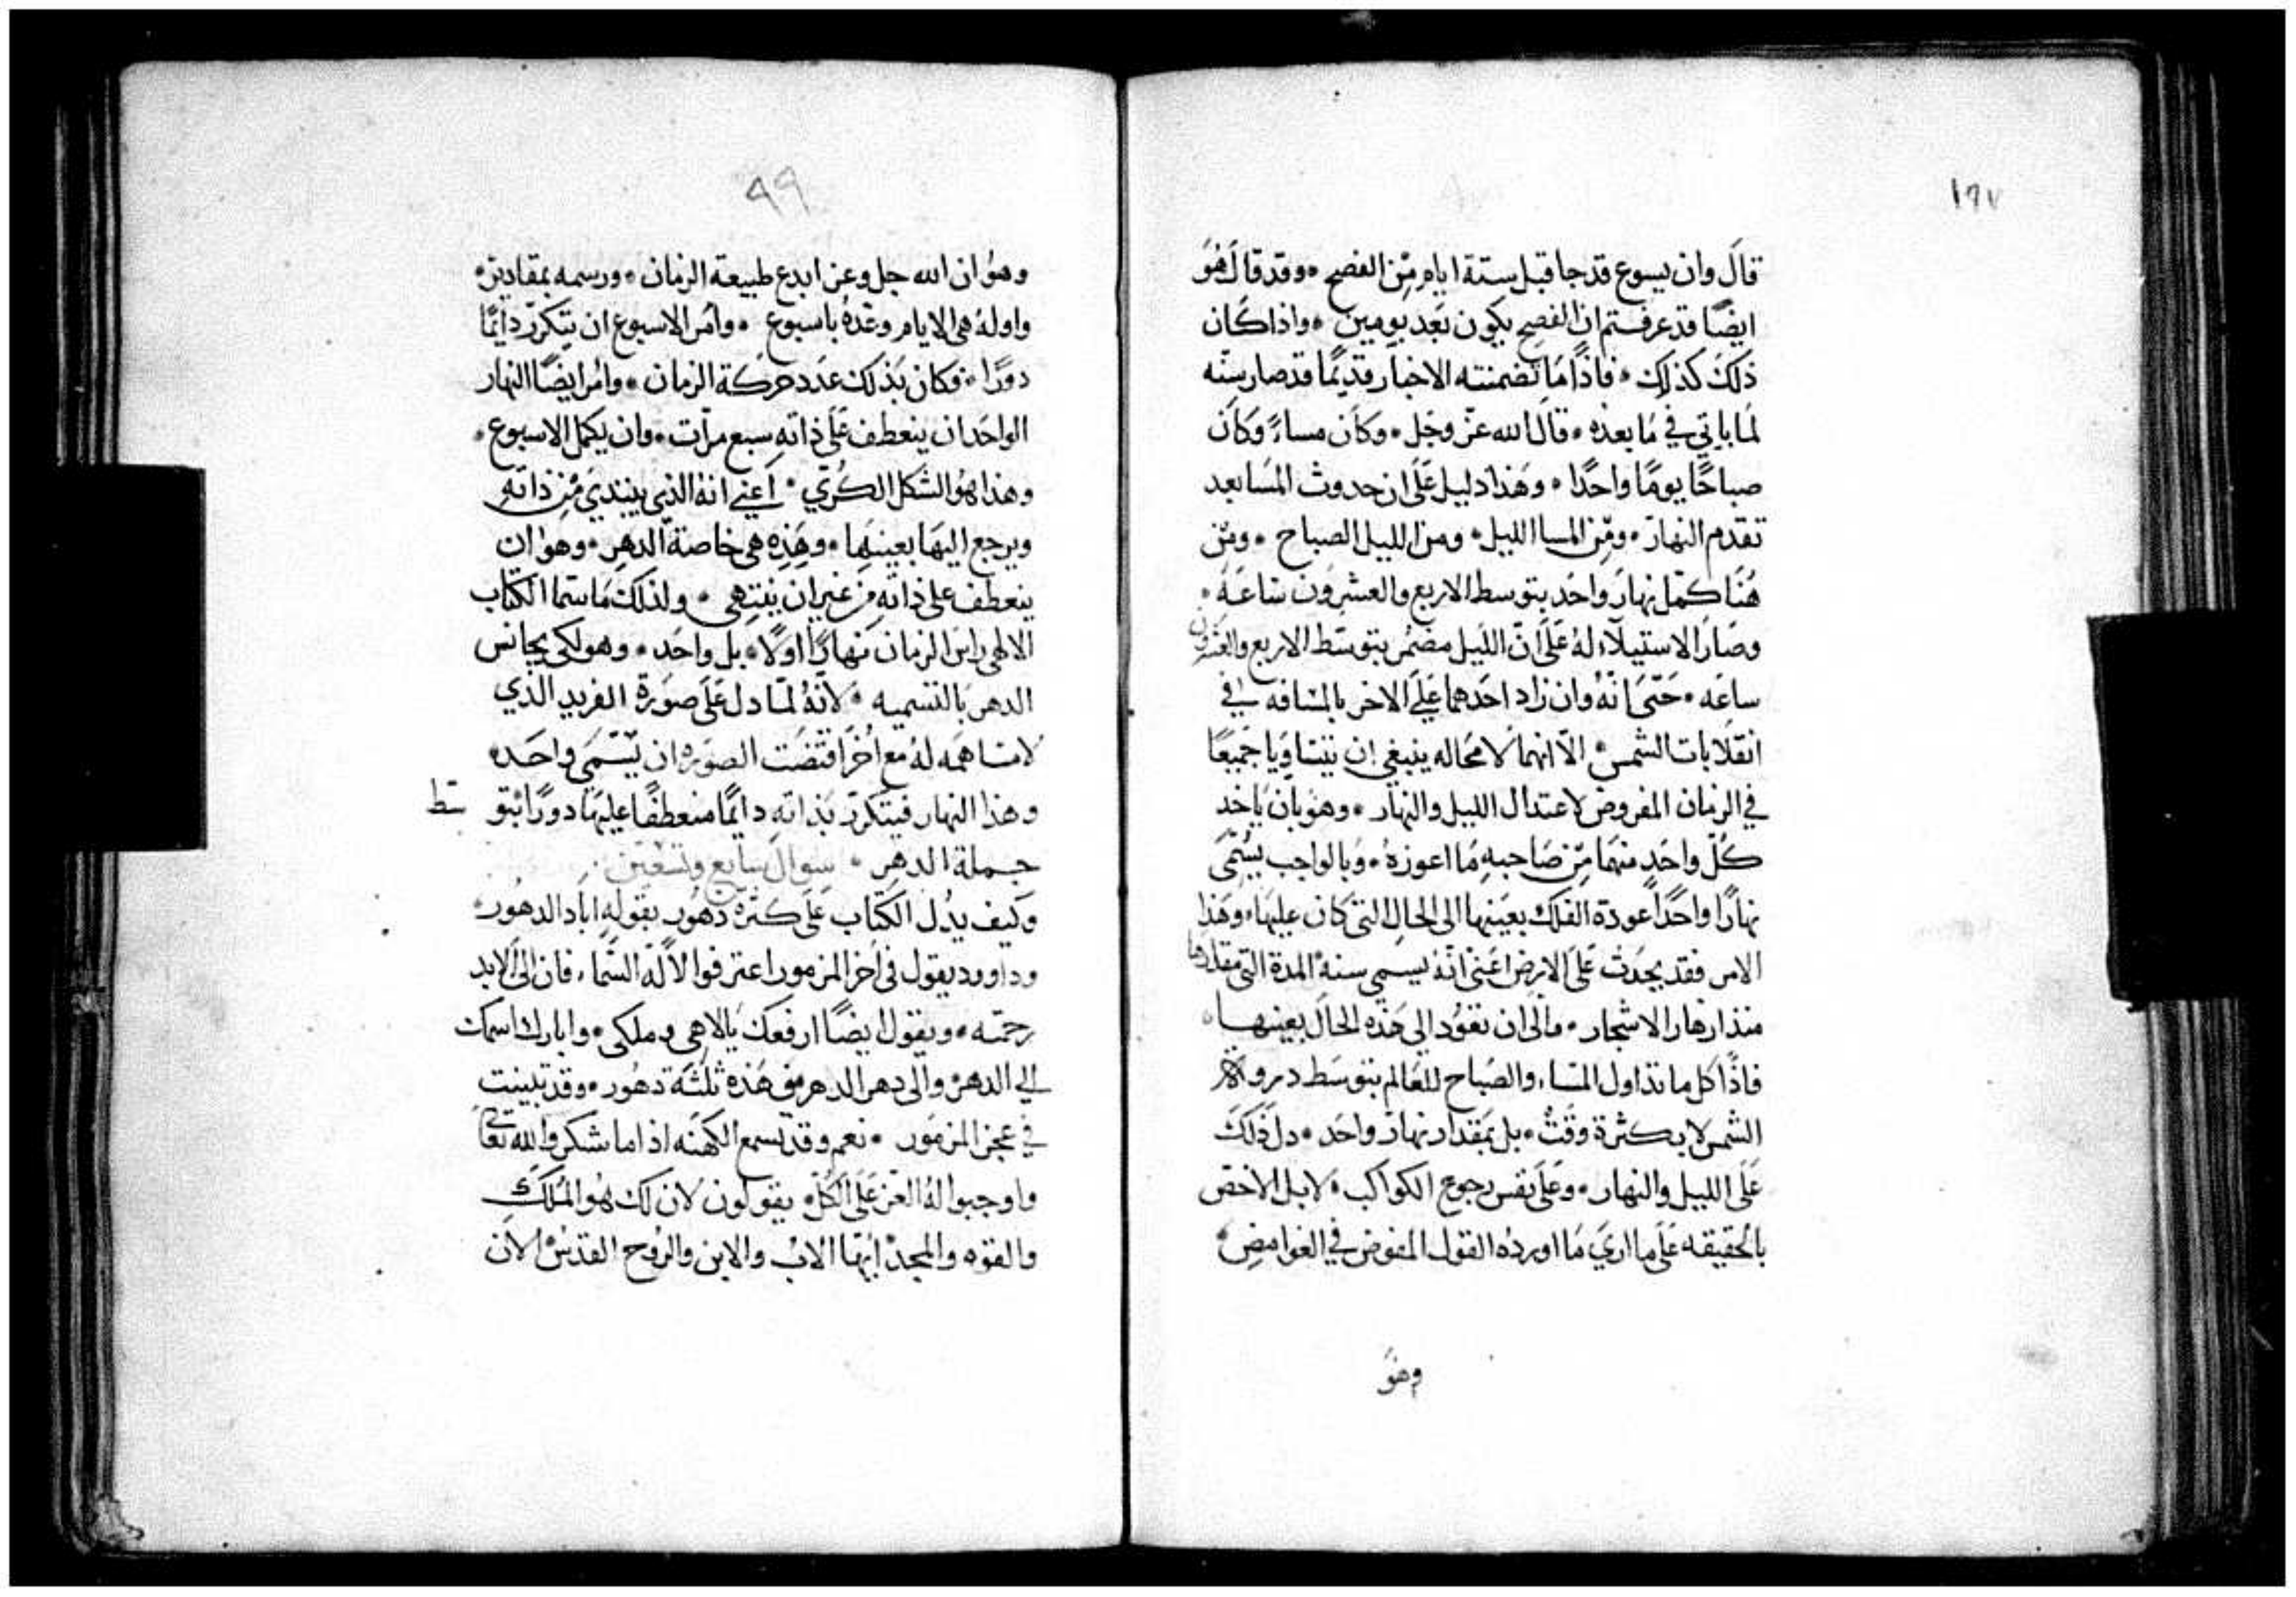 ١٩٧
قال وان يسوع قد جا قبل ستة ايام من الفصح ٠ وقد قال هو
ايضًا قد عرفتم ان الفصح يكون بعد يومين ٠ واذا كان
ذلك كذلك ٠ فاذًا ما تضمنته الاخبار قديمًا قد صار سنه
لما ياتي في ما بعده ٠ قال الله عز وجل ٠ وكان مساءً وكان
صباحًا يومًا واحدًا ٠ وهذا دليل على ان حدوث المسا بعد
تقدم النهار ٠ ومن المسا الليل ٠ ومن الليل الصباح ٠ ومن
هنا كمل نهار واحد بتوسط الاربع والعشرون ساعة ٠
وصار الاستيلاء له على ان الليل مضمر بتوسط الاربع والعشرون
ساعه ٠ حتى انه وان زاد احدهما على الاخر بالمسافه في
انقلابات الشمس ٠ الا انهما لا محاله ينبغي ان يتساويا جميعًا
في الزمان المفروض لاعتدال الليل والنهار ٠ وهو بان ياخد
كل واحد منهما من صاحبه ما اعوزه ٠ وبالواجب يسمى
نهارًا واحدًا عودة الفلك بعينها الى الحال التي كان عليها ٠ وهذا
الامر فقد يحدث على الارض اعني انه يسمي سنة المدة التي مقدارها
منذ ازهار الاشجار ٠ والى ان تعود الى هذه الحال بعينها ٠
فاذًا كل ما تداول المساء والصباح للعالم بتوسط
الشمس لا بكثرة وقت ٠ بل بمقدار نهار واحد ٠ دل ذلك
على الليل والنهار ٠ وعلى نفس رجوع الكواكب ٠ لا بل الاخص
بالحقيقه على ما اري ما اورده القول المفوض في الغوامض ٠
وهو
٩٩
وهو ان الله جل وعز ابدع طبيعة الزمان ٠ ورسمه بمقادير ٠
واوله هي الايام وعده باسبوع ٠ وامر الاسبوع ان يتكرر دايمًا
دورًا ٠ فكان بذلك عدد حركة الزمان ٠ وامر ايضًا النهار
الواحد ان ينعطف على ذاته سبع مرات ٠ وان يكمل الاسبوع ٠
وهذا هو الشكل الكري ٠ اعني انه الذي يبتدي من ذاته
ويرجع اليها بعينها ٠ وهذه هي خاصة الدهر ٠ وهو ان
ينعطف على ذاته من غير ان ينتهي ٠ ولذلك ما سما الكتاب
الالهي راس الزمان نهارًا اولًا ٠ بل واحد ٠ وهو لكي يجانس
الدهر بالتسميه ٠ لانه لما دل على صورة الفريد الذي
لا مساهمه له مع اخر اقتضت الصوره ان يسمى واحده
وهذا النهار فيتكرر بذاته دايمًا منعطفًا عليها دورًا بتوسط
جملة الدهر ٠ سوال سابع وتسعين
وكيف يدل الكتاب على كثرة دهور بقوله اباد الدهور ٠
وداوود يقول في اخر المزمور اعترفوا لاله السماء فان الى الابد
رحمته ٠ ويقول ايضًا ارفعك يالاهي وملكي ٠ وابارك اسمك
الى الدهر والى دهر الدهر فى هذه ثلثة دهور ٠ وقد تبينت
في عجز المزمور ٠ نعم وقد يسمع الكهنه اذا ما شكروا الله تعالى
واوجبوا له العز على الكل ٠ يقولون لان لك هو الملك
والقوه والمجد ايها الاب والابن والروح القدس الان